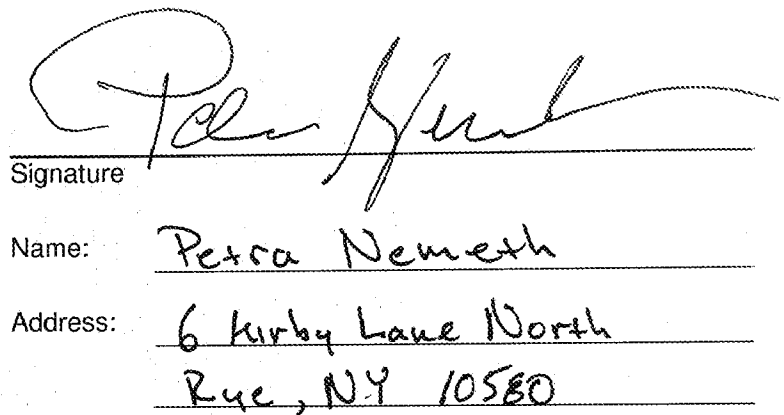 Signature
Name: Petra Nemeth
Address: 6 Kirby Lane North
Rye, NY 10580